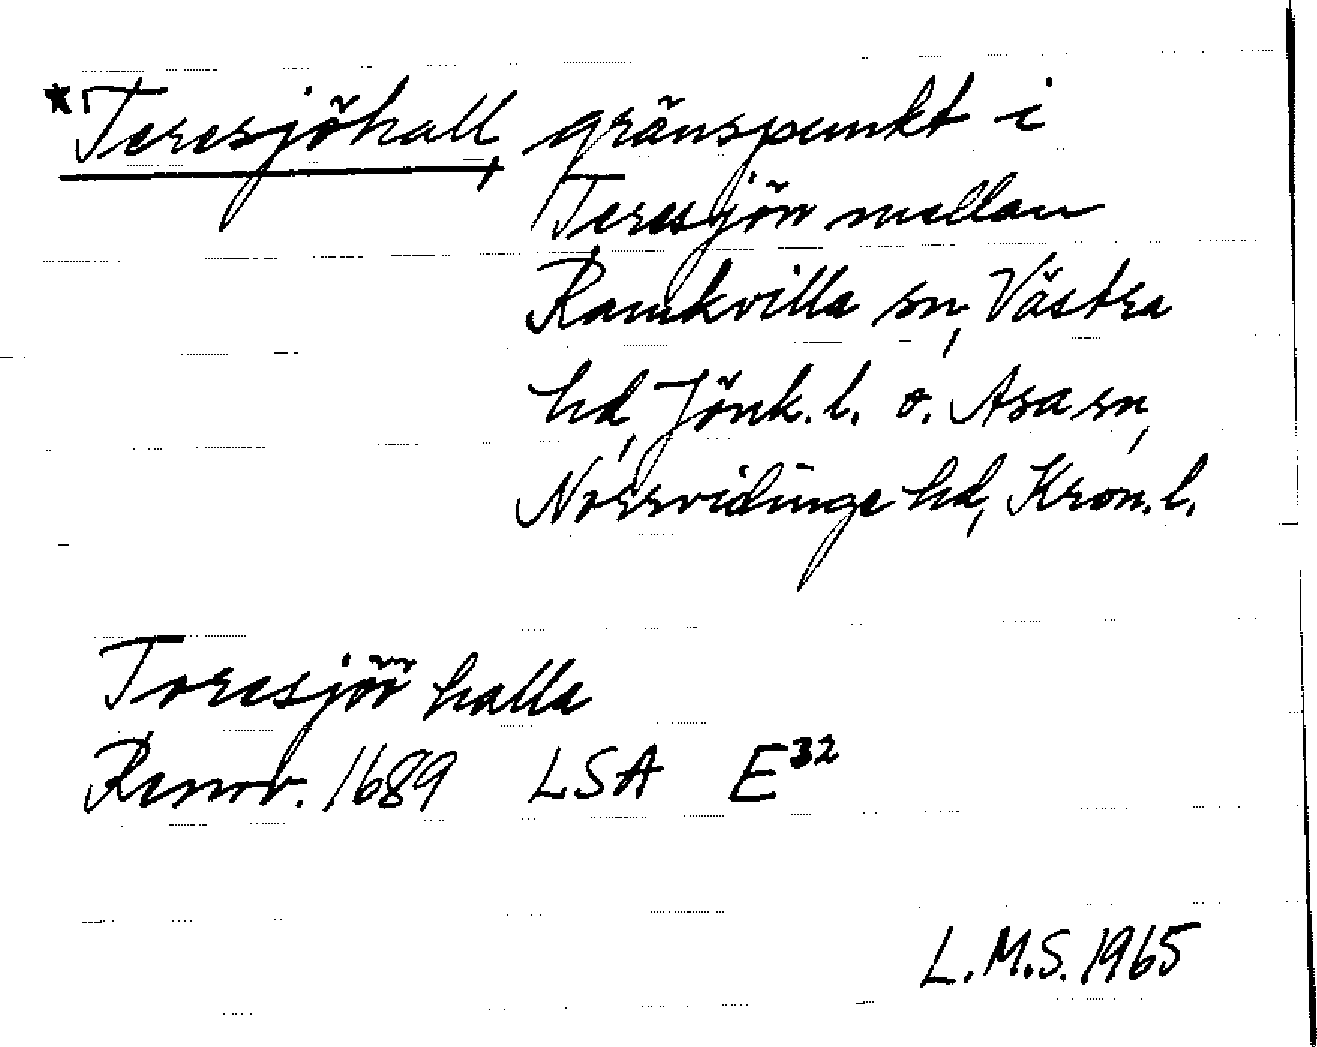 *Teresjöhall, gränspunkt i
Teresjön mellan
Ramkvilla sn, Västra
hd, Jönk. l. o. Asa sn,
Norrvidinge hd, Kron. l.
Toresjöö halla
Renov. 1689 LSA E32
L.M.S. 1965